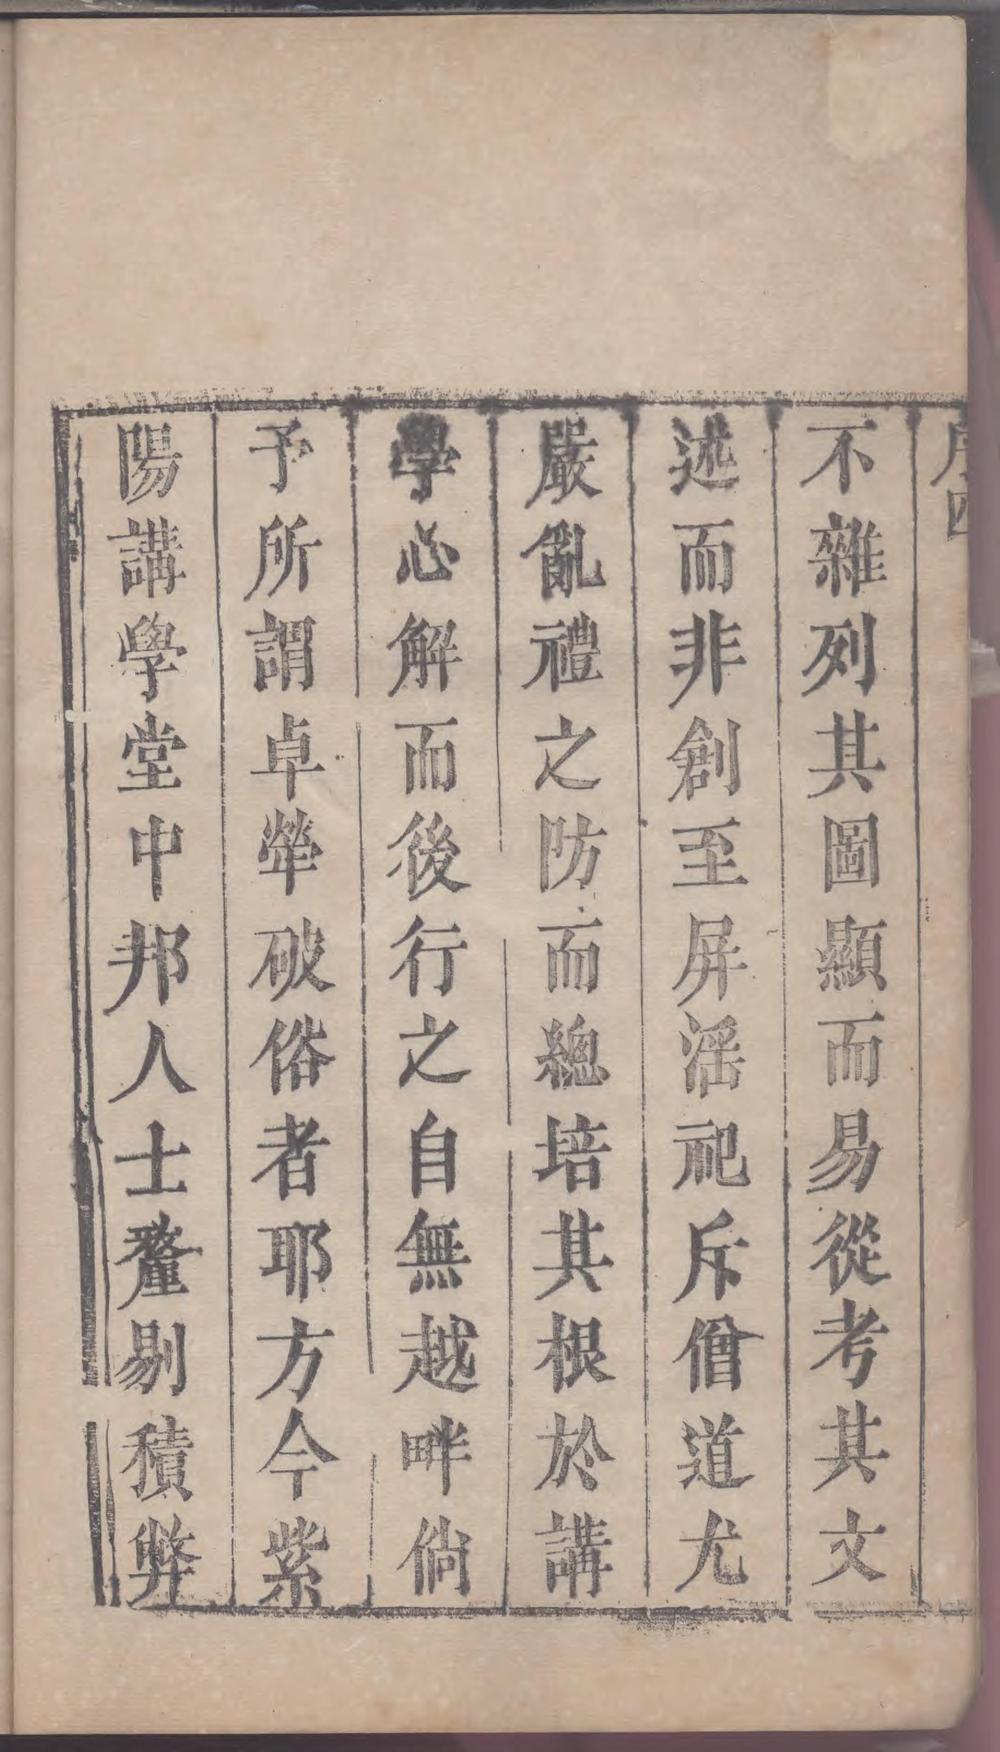 序四
不雜列其圖顯而易從考其文
述而非創至屏滛祀斥僧道尤
嚴亂禮之防而總培其根於講
學心解而後行之自無越畔倘
予所謂卓犖破俗者耶方今紫
陽講學堂中邦人士釐剔積弊